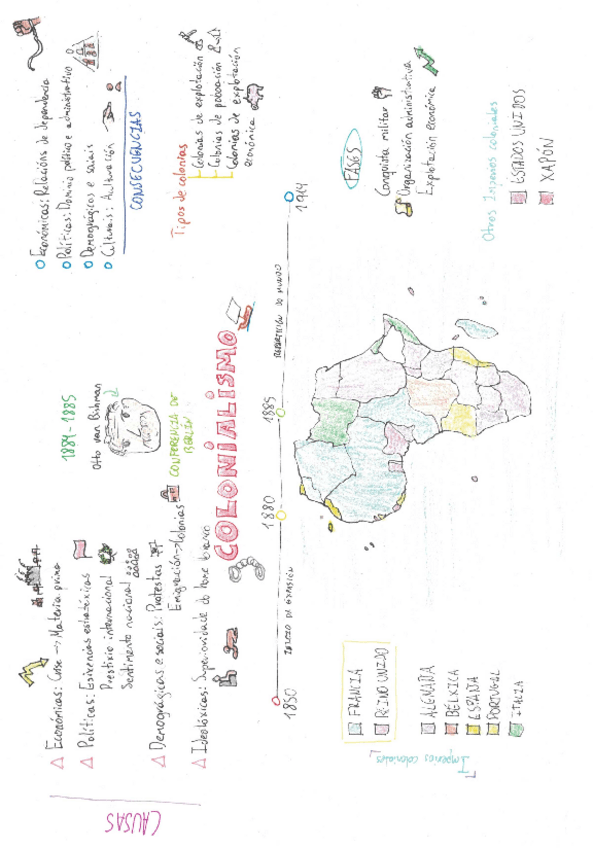 CAUSAS
Económicas: Crise → Materia prima
Políticas: Esixencias estratéxicas
Prestixio internacional
Sentimento nacional
Demográgicas e sociais: Protestas
Emigración → Colonias
Ideolóxicas: Superioridade do home branco
1884-1885
Otto von Bishman
CONFERENCIA DE
BERLÍN
Económicas: Relacións de dependencia
Políticas: Dominio político e administrativo
Demográgicos e sociais
Culturais: Aculturación
CONSECUENCIAS
COLONIALISMO
Tipos de colonias
Colonias de explotación
Colonias de poboación
Colonias de explotación
económica
1850
INICIO DA EXPANSIÓN
1880
1885
REPARTICIÓN DO MUNDO
1914
Imperios coloniales
FRANCIA
REINO UNIDO
ALEMAÑA
BÉLXICA
ESPAÑA
PORTUGAL
ITALIA
FASES
Conquista militar
Organización administrativa
Explotación económica
Otros Imperios coloniales
ESTADOS UNIDOS
XAPÓN